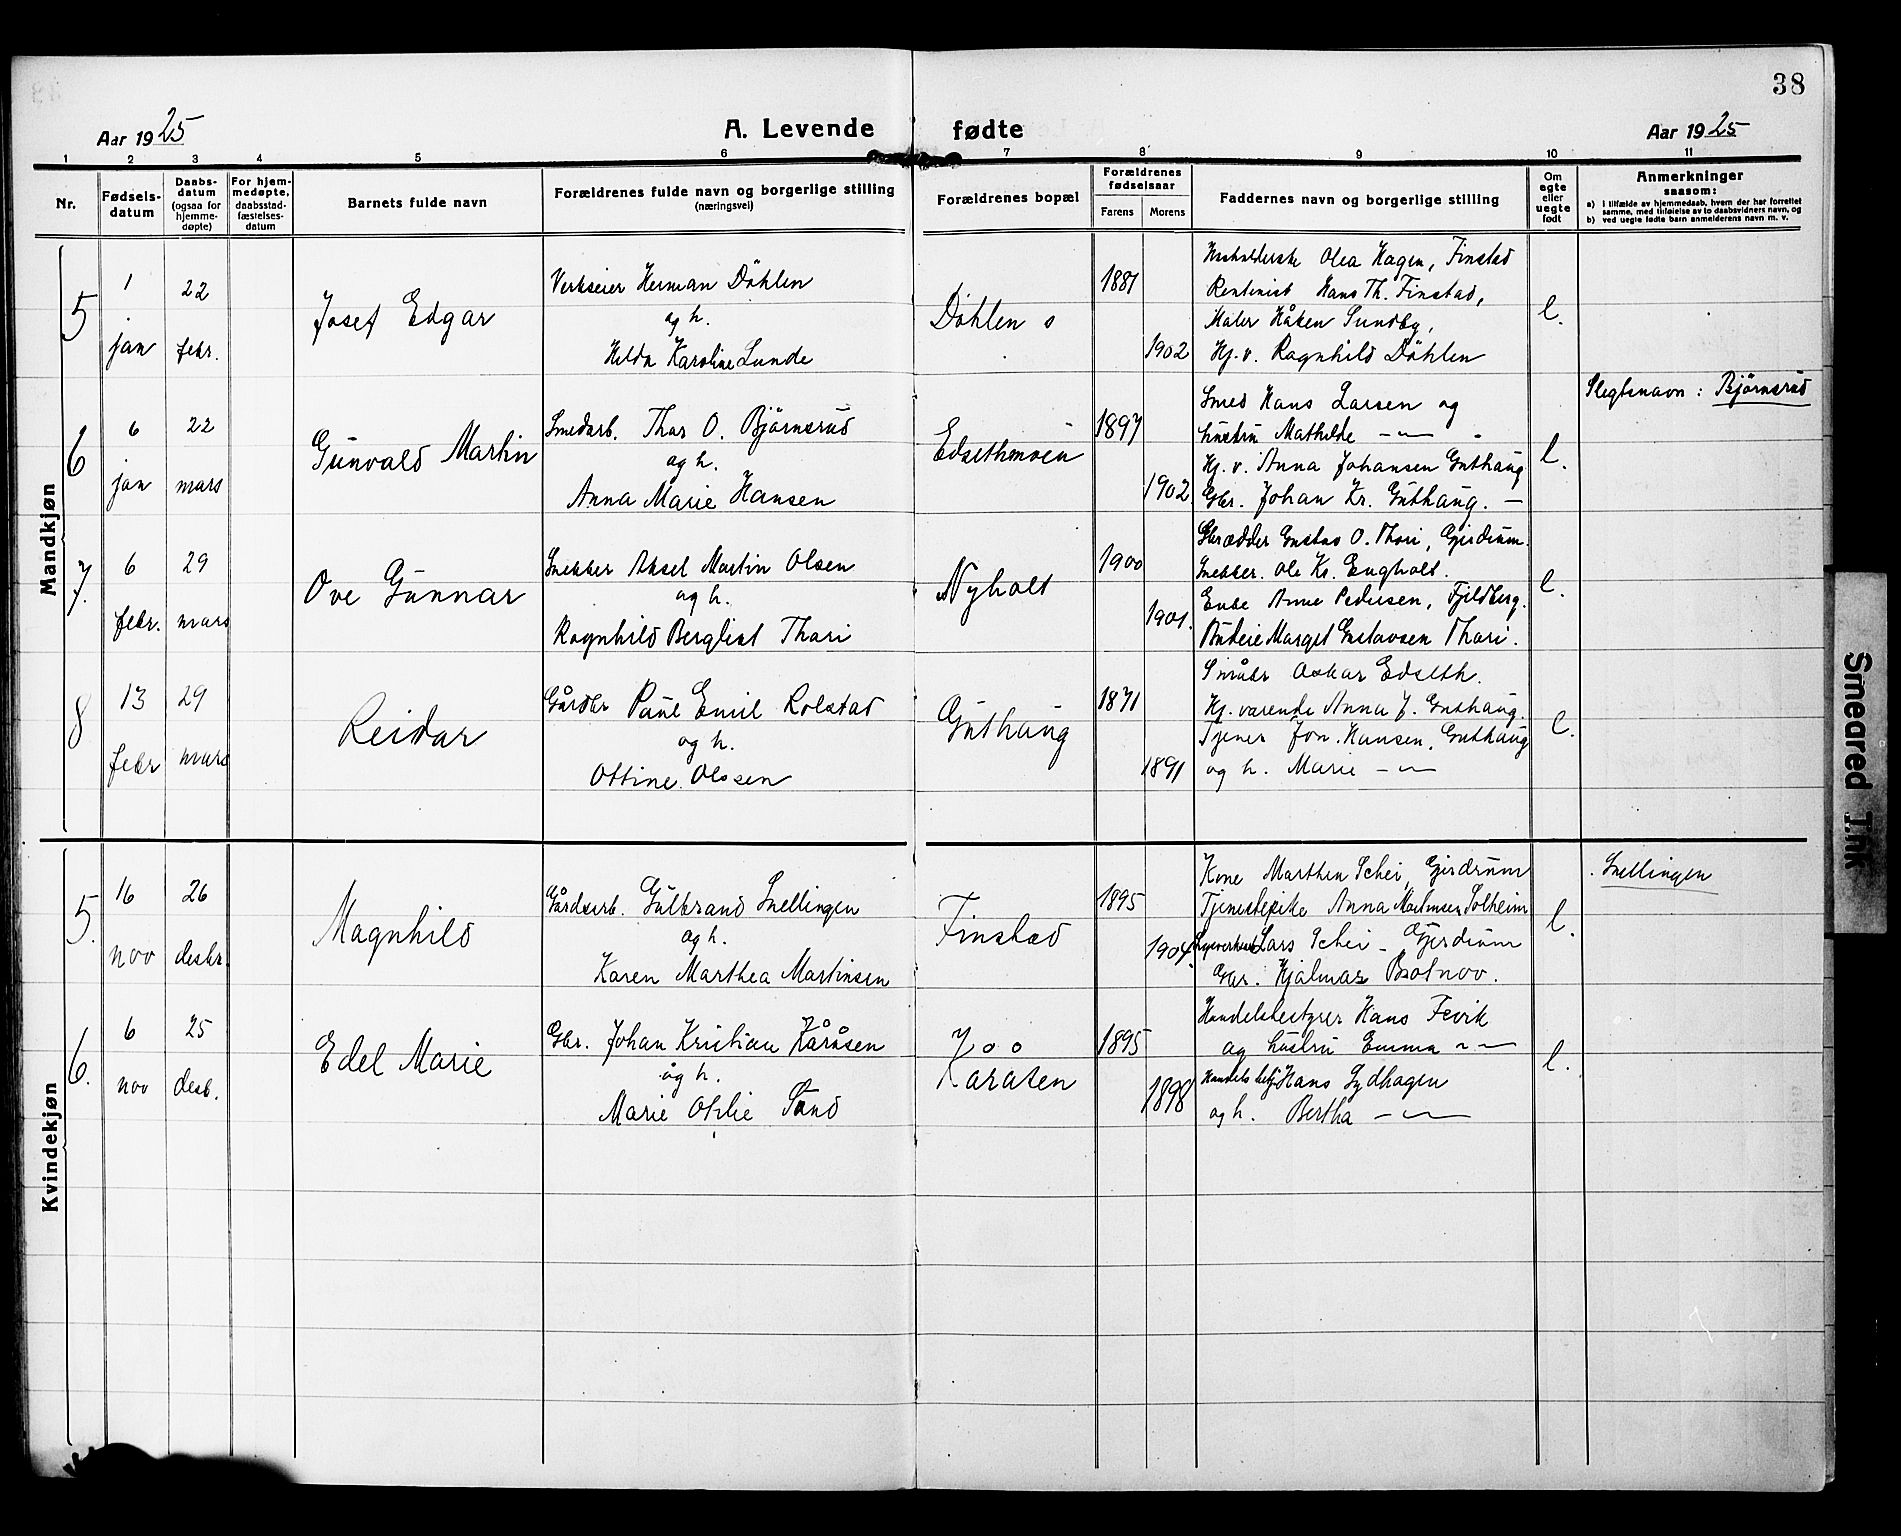 38
Aar 1925
A. Levende fødte
Aar 1925
1 2 3 4 5 6 7 8 9 10 11
Nr.
Fødsels-
datum
Daabs-
datum
(ogsaa for
hjemme-
døpte)
For hjem-
medøpte,
daabsstad-
fæstelses-
datum
Barnets fulde navn
Forældrenes fulde navn og borgerlige stilling
(næringsvei)
Forældrenes bopæl
Forældrenes
fødselsaar
Farens
Morens
Faddernes navn og borgerlige stilling
Om
egte
eller
uegte
født
Anmerkninger
saasom:
a) i tilfælde av hjemmedaab, hvem der har forrettet
samme, med tilføielse av to daabsvidners navn, og
b) ved uegte fødte barn anmelderens navn m. v.
Mandkjøn
5
1
jan
22
febr.
Josef Edgar
Verkseier Herman Döhlen
og h.
Hilda Karoline Lunde
Döhlen s
1881
1902
Husholderske Olea Hagen, Finstad
Rentenist Hans Th. Finstad,
Maler Håken Sundby,
Hj. v. Ragnhild Döhlen
l.
6
6
jan
22
mars
Gunvald Martin
Smedarb. Thor O. Björnsrud
og h.
Anna Marie Hansen
Edsethmoen
1897
1902
Smed Hans Larsen og
hustru Mathilde — " —
Hj. v. Anna Johansen Guthaug
Gbr. Johan Kr. Guthaug. —
l.
Slegtsnavn: Björnsrud
7.
6
febr.
29
mars
Ove Gunnar
Snekker Aksel Martin Olsen
og h.
Ragnhild Bergliot Thari
Nyholt
1900
1901.
Skrædder Gustav O. Thori, Gjerdrum.
Snekker. Ole Kr. Engholt.
Enke Anne Pedersen, Fjeldberg.
Margit Gustavsen Thari.
l.
8
13
febr
29
mars
Reidar
Gårdbr Paul Emil Rolstad
og h.
Ottine Olssen
Guthaug
1871
1891
Småbr Oskar Edseth.
Hj. værende Anna J. Guthaug.
Tjener Jon. Hansen, Guthaug
og h. Marie — " —
l.
Kvindekjøn
5.
16
nov
26
desbr.
Magnhild
Gårdsarb. Gulbrand Snellingen
og h.
Karen Marthea Martinsen
Finstad
1895
1904.
Kone Marthea Schei, Gjerdrum
Tjenestepike Anna Martinsen Solheim
Lars Schei - Gjerdrum
Gbr. Hjalmar Brotnov.
l.
Snellingen
6.
6
nov
25
desb.
Edel Marie
Gbr. Johan Kristian Kåråsen
og h.
Marie Othlie Sand
Karasen
1895
1898
Handelsbestyrer Hans Fevik
og hustru Emma — " —
Handelsbetj Hans Lydhagen
og h. Bertha — " —
l.
Smeared Ink